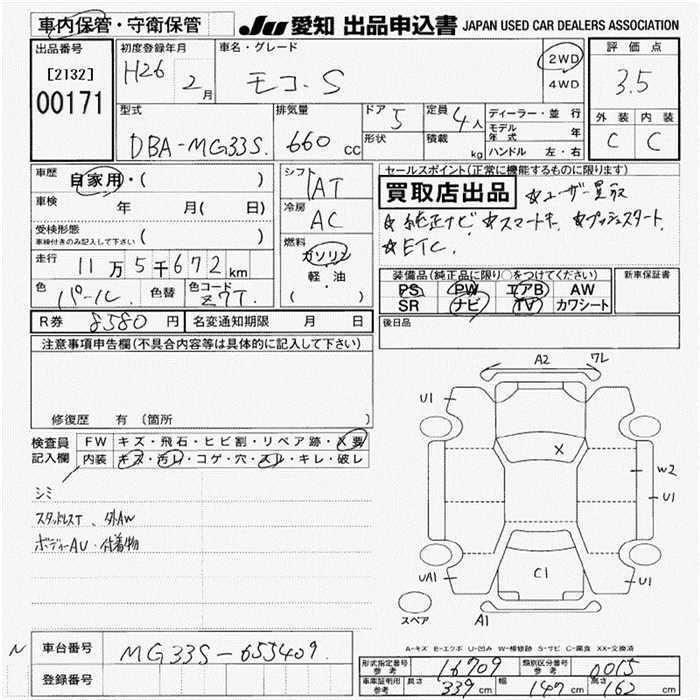 車内保管・守衛保管
JU 愛知 出品申込書 JAPAN USED CAR DEALERS ASSOCIATION
出品番号
[2132]
00171
初度登録年月
H26 2月
車名・グレード
モコ・S
2WD
4WD
評価点
3.5
外装 内装
C C
型式
DBA-MG33S.
排気量
660 cc
ドア 5
形状
定員 4人
積載 kg
ディーラー・並行
モデル年式 年
ハンドル 左・右
車歴 自家用・( )
車検 年 月( 日)
受検形態
車検付きのみ記入して下さい ( )
走行 11万5千672km
色 パール.
色替
色コード Z7T.
シフト IAT
冷房 AC
燃料
ガソリン
軽・油
( )
セールスポイント(正常に機能するものに限ります)
買取店出品 ☆ユーザー買取
☆純正ナビ ☆スマートキ. ☆プッシュスタート.
☆ETC.
装備品(純正品に限り○をつけてください)
PS PW エアB AW
SR ナビ TV カワシート
新車保証書
後日品
R券 8580円
名変通知期限 月 日
注意事項申告欄(不具合内容等は具体的に記入して下さい)
修復歴 有 (箇所 )
検査員記入欄
FW キズ・飛石・ヒビ割・リペア跡・X要
内装 キズ・汚レ・コゲ・穴・スレ・キレ・破レ
シミ
スタッドレスT、外AW
ボディーAU・付着物
A2 7L
U1
X
W2
U1
UA1
C1
U1
A1
スペア
A-キズ E-エクボ U-凹み W-補修跡 S-サビ C-腐食 XX-交換済
N
車台番号 MG33S-655409.
登録番号
形式指定番号 参考 16709
類別区分番号 参考 0015
車庫証明用 参考 長さ 339cm 幅 147cm 高さ 162cm